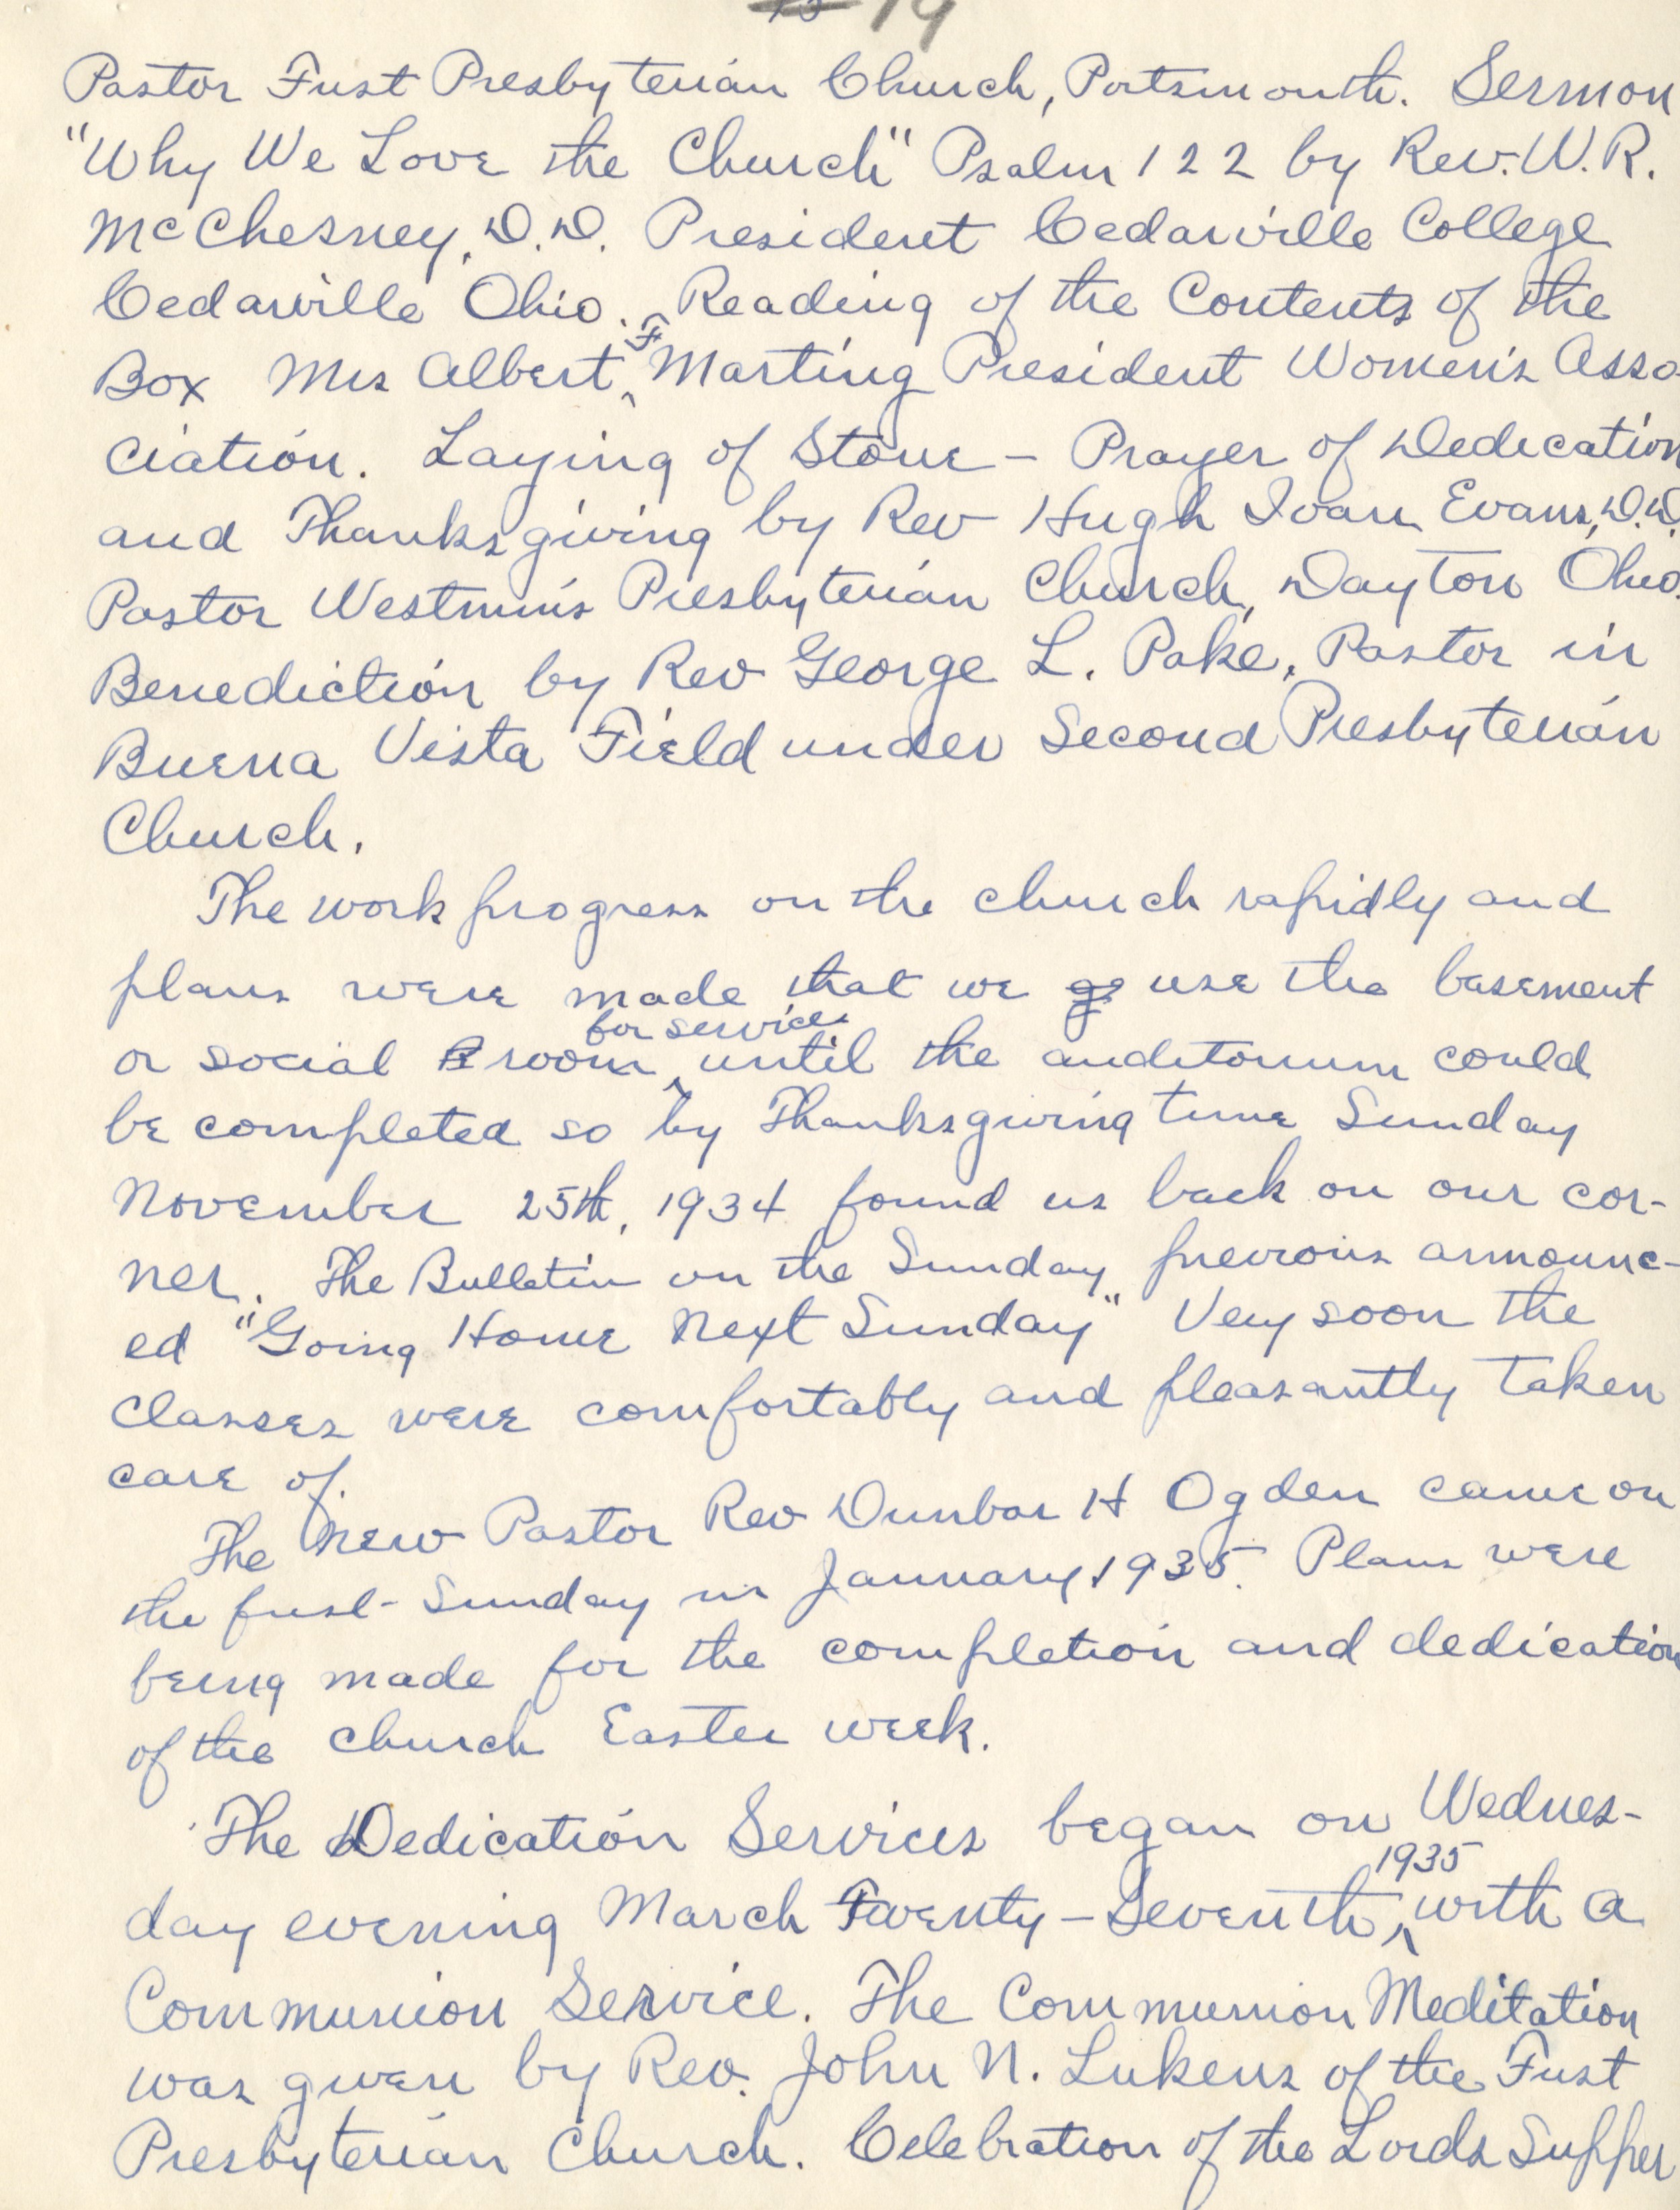 19
Pastor First Presbyterian Church, Portsmouth. Sermon
"Why We Love the Church" Psalm 122 by Rev. W.R.
McChesney, D.D. President Cedarville College
Cedarville Ohio. Reading of the Contents of the
Box Mrs Albert F Marting President Women's Asso-
ciation. Laying of Stone - Prayer of Dedication
and Thanksgiving by Rev Hugh Ivan Evans, D.D.
Pastor Westmins Presbyterian Church, Dayton Ohio.
Benediction by Rev George L. Pake, Pastor in
Buena Vista Field under Second Presbyterian
Church.
The work progress on the church rapidly and
plans were made that we go use the basement
or social R room for services until the auditorium could
be completed so by Thanksgiving time Sunday
November 25th, 1934 found us back on our cor-
ner. The Bulletin on the Sunday previous announc-
ed "Going Home Next Sunday" Very soon the
classes were comfortably and pleasantly taken
care of.
The new Pastor Rev Dunbar H Ogden came on
the first Sunday in January, 1935. Plans were
being made for the completion and dedication
of the church Easter week.
The Dedication Services began on Wednes-
day evening March Twenty-Seventh, 1935 with a
Communion Service. The Communion Meditation
was given by Rev. John N. Lukens of the First
Presbyterian Church. Celebration of the Lords Supper